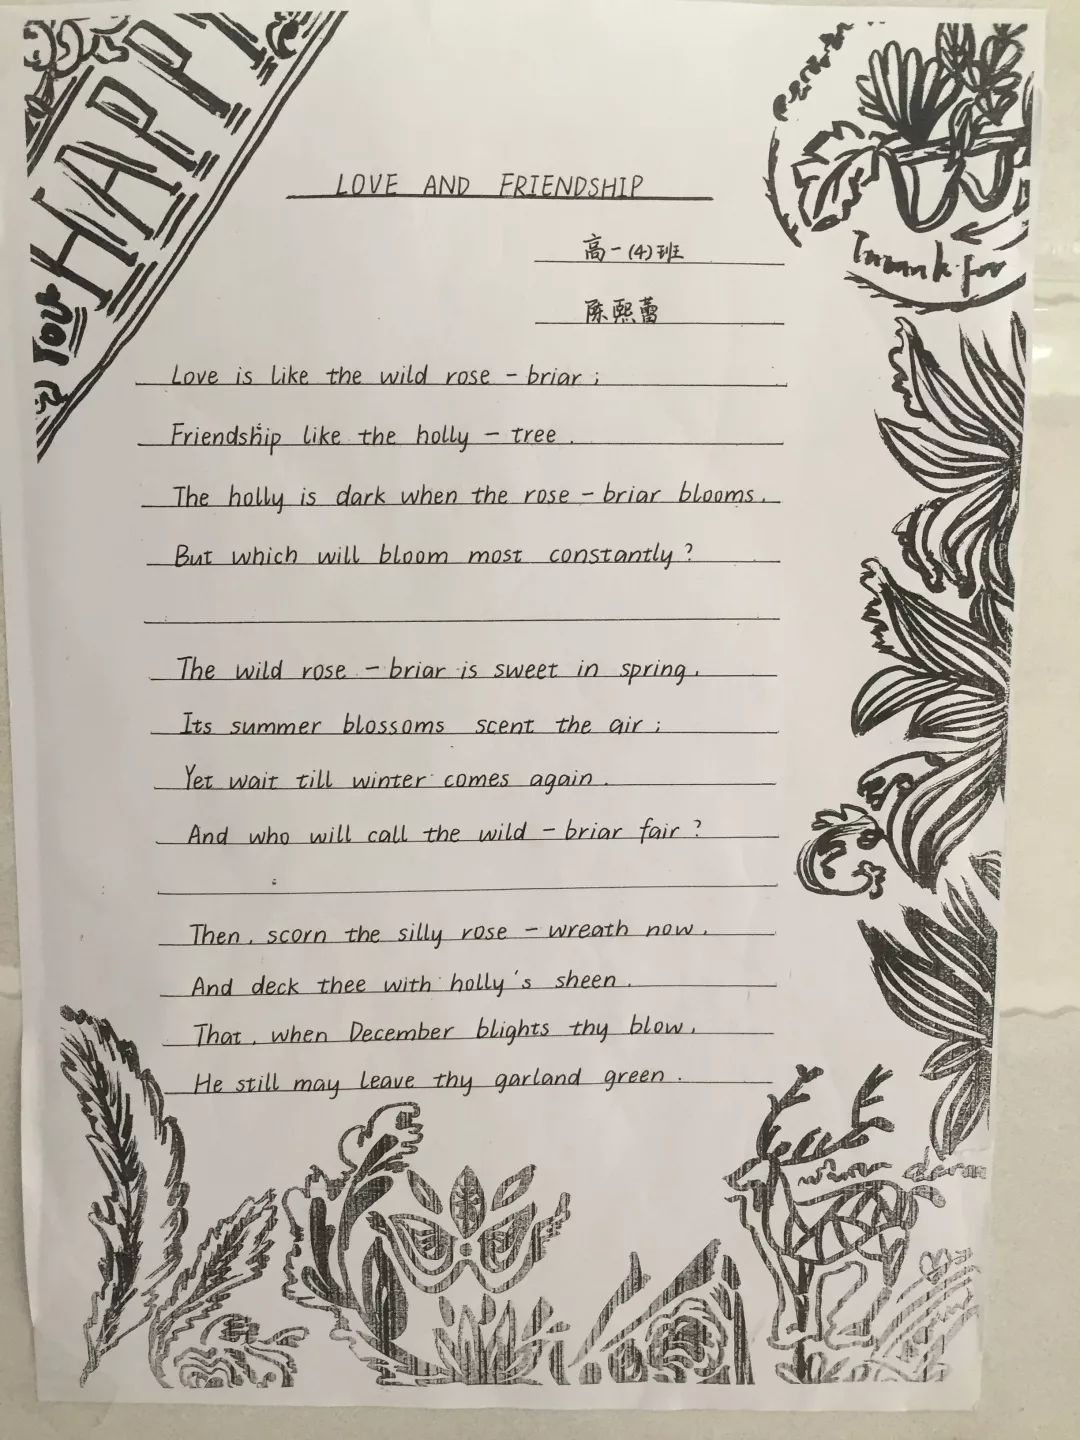 HAPPY
YOU
Thank for
LOVE AND FRIENDSHIP
高一(4)班
陈熙蕾
Love is like the wild rose - briar ;
Friendship like the holly - tree .
The holly is dark when the rose - briar blooms .
But which will bloom most constantly ?
The wild rose - briar is sweet in spring .
Its summer blossoms scent the air ;
Yet wait till winter comes again .
And who will call the wild - briar fair ?
Then . scorn the silly rose - wreath now .
And deck thee with holly's sheen .
That . when December blights thy blow .
He still may leave thy garland green .